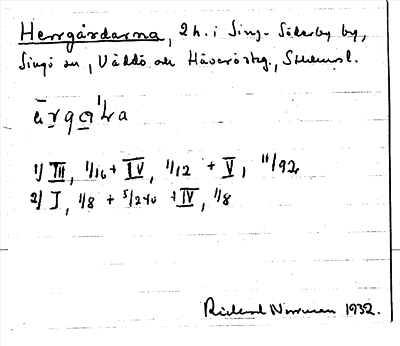 Herrgårdarna, 2 h. i Sing. Söderby by,
Singö sn, Väddö och Häverö skg., Sthlmsl.
1) III, 1/16 + IV, 1/12 + V, 11/92
2) I, 1/8 + 5/240 + IV, 1/8
Rickard Norrman 1932.